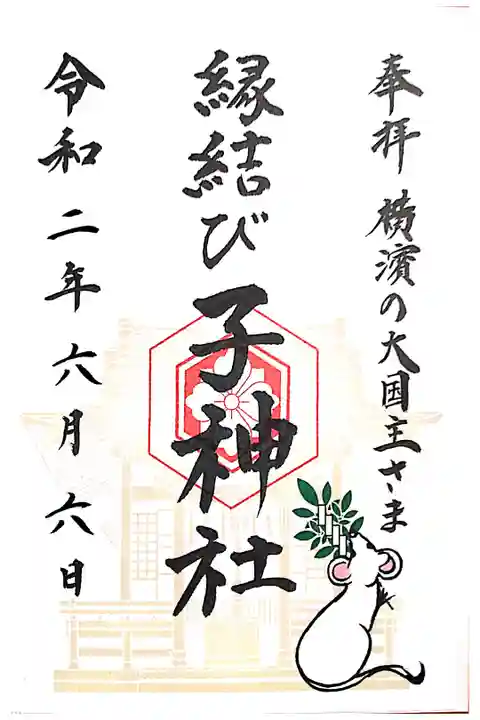 奉拝 横濱の大国主さま
縁結び 子神社
令和二年六月六日